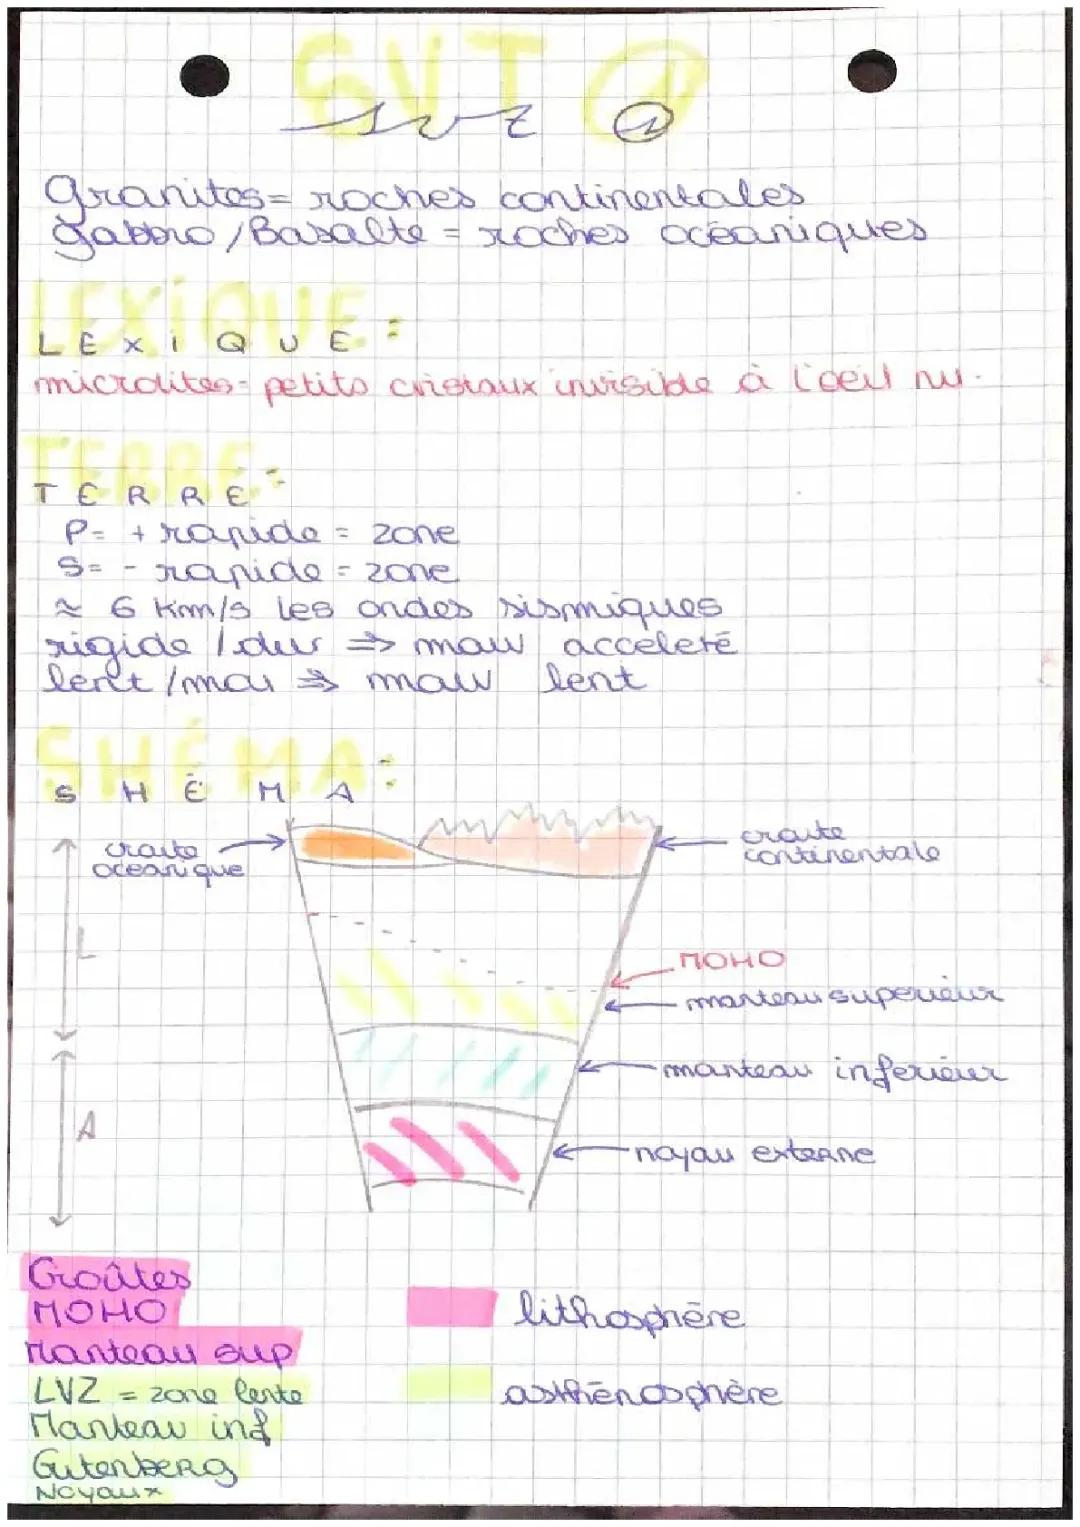 SVT 1
SVT 1
Granites = roches continentales
Gabbro / Basalte = roches océaniques
LEXiQUE :
LEXiQUE
microlites = petits cristaux invisible à l'oeil nu.
TERRE :
TERRE
P = + rapide = zone
S = - rapide = zone
≈ 6 Km/s les ondes sismiques
rigide / dur => mouv acceleré
lent / mou => mouv lent
SHÉMA :
SHÉMA
croute oceanique
croute continentale
L
MOHO
manteau superieur
manteau inferieur
A
noyau externe
Croûtes
MOHO
Manteau sup
LVZ = zone lente
Manteau inf
Gutenberg
Noyaux
lithosphère
asthénosphère